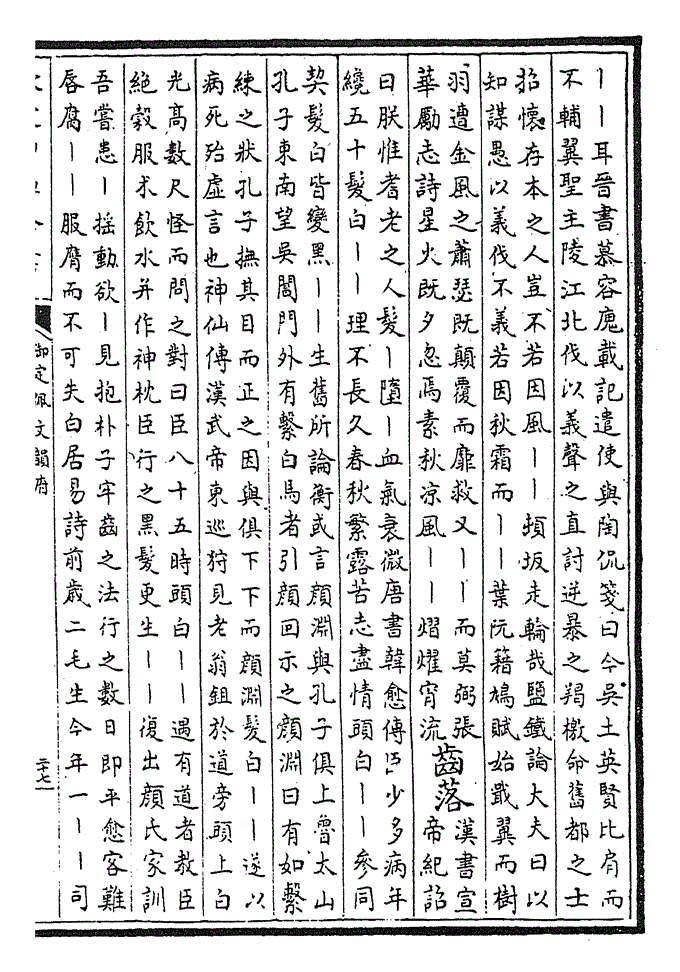 丨丨耳晉書慕容廆載記遣使與陶侃箋曰今吳土英賢比肩而
不輔翼聖主陵江北伐以義聲之直討逆暴之羯檄命舊都之士
招懷存本之人豈不若因風丨丨頓坂走輪哉鹽鐵論大夫曰以
知謀愚以義伐不義若因秋霜而丨丨葉阮籍鳩賦始戢翼而樹
羽遭金風之蕭瑟既顛覆而靡救又丨丨而莫弼張
華勵志詩星火既夕忽焉素秋涼風丨丨熠燿宵流
齒落
漢書宣
帝紀詔
曰朕惟耆老之人髮丨墮丨血氣衰微唐書韓愈傳少多病年
纔五十髮白丨丨理不長久春秋繁露苦志盡情頭白丨丨參同
契髮白皆變黑丨丨生舊所論衡或言顏淵與孔子俱上魯太山
孔子東南望吳閶門外有繫白馬者引顏回示之顏淵曰有如繫
練之狀孔子撫其目而正之因與俱下下而顏淵髮白丨丨遂以
病死殆虛言也神仙傳漢武帝東巡狩見老翁鉏於道旁頭上白
光高數尺怪而問之對曰臣八十五時頭白丨丨遇有道者教臣
絕穀服朮飲水并作神枕臣行之黑髮更生丨丨復出顏氏家訓
吾嘗患丨搖動欲丨見抱朴子牢齒之法行之數日即平愈客難
唇腐丨丨服膺而不可失白居易詩前歲二毛生今年一丨丨司
御定佩文韻府
二十七